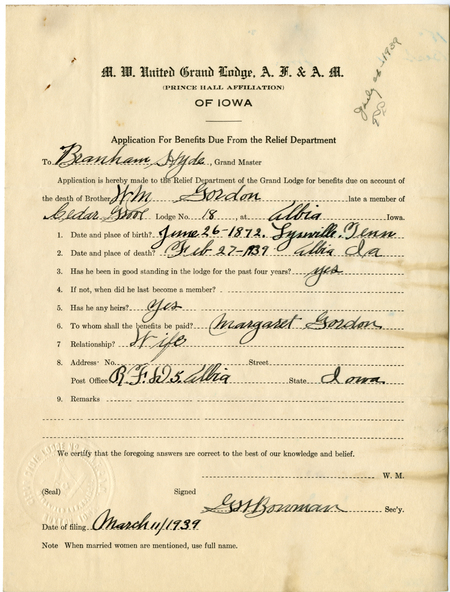 M. W. United Grand Lodge, A. F. & A. M.
(PRINCE HALL AFFILIATION)
OF IOWA
Application For Benefits Due From the Relief Department
To Branham Hyde, Grand Master
Application is hereby made to the Relief Department of the Grand Lodge for benefits due on account of
the death of Brother Wm Gordon late a member of
Cedar Lodge No. 18, at Albia Iowa.
1. Date and place of birth? June 26-1872. Lynville, Tenn
2. Date and place of death? Feb 27-1939 Albia Ia
3. Has he been in good standing in the lodge for the past four years? yes
4. If not, when did he last become a member?
5. Has he any heirs? Yes
6. To whom shall the benefits be paid? Margaret Gordon
7 Relationship? Wife
8. Address No. Street
Post Office R.F.D 5. Albia State Iowa
9. Remarks
We certify that the foregoing answers are correct to the best of our knowledge and belief.
W. M.
(Seal) Signed
Bowman Sec'y.
Date of filing March 11/1939
Note When married women are mentioned, use full name.